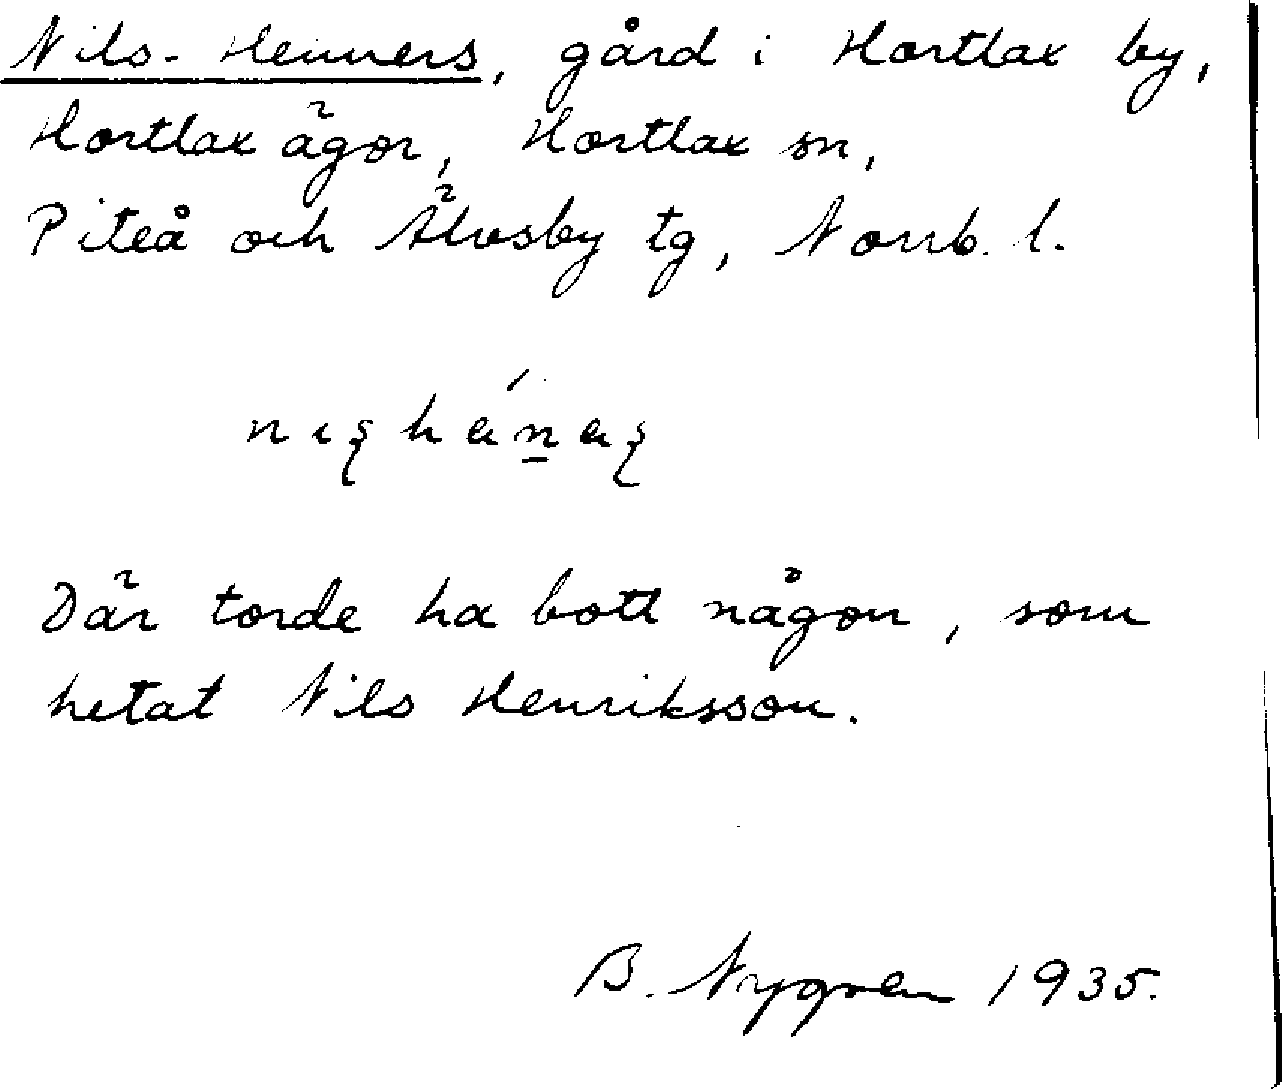 Nils-Henners, gård i Hortlax by,
Hortlax ägor, Hortlax sn,
Piteå och Älvsby tg, Norrb. l.
Där torde ha bott någon, som
hetat Nils Henriksson.
B. Nygren 1935.